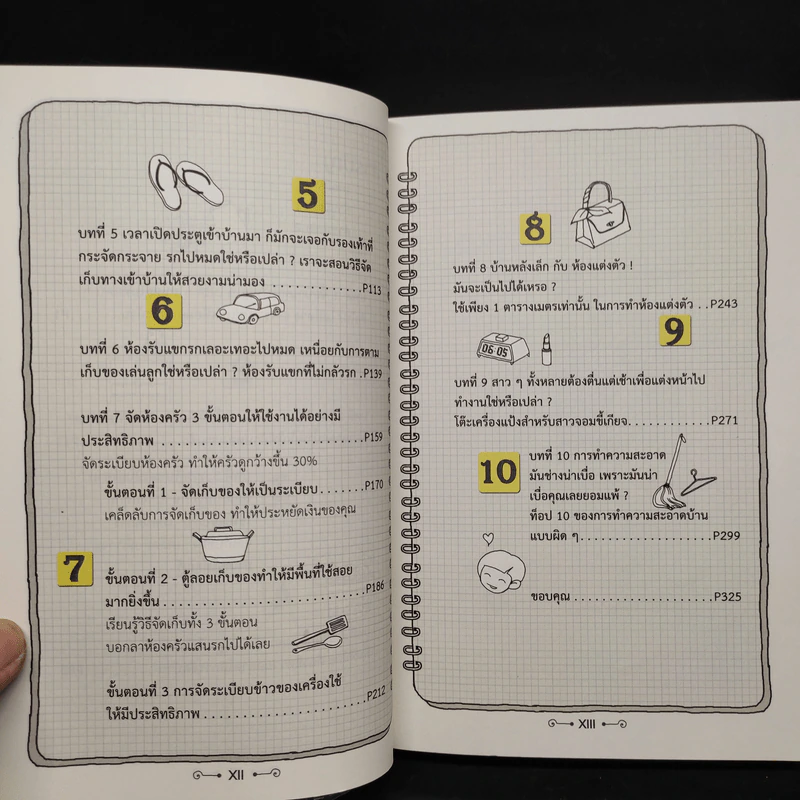 5
บทที่ 5 เวลาเปิดประตูเข้าบ้านมา ก็มักจะเจอกับรองเท้าที่
กระจัดกระจาย รกไปหมดใช่หรือเปล่า ? เราจะสอนวิธีจัด
เก็บทางเข้าบ้านให้สวยงามน่ามอง ............P113
6
บทที่ 6 ห้องรับแขกรกเลอะเทอะไปหมด เหนื่อยกับการตาม
เก็บของเล่นลูกใช่หรือเปล่า ? ห้องรับแขกที่ไม่กลัวรก .P139
บทที่ 7 จัดห้องครัว 3 ขั้นตอนให้ใช้งานได้อย่างมี
ประสิทธิภาพ ............................P159
จัดระเบียบห้องครัว ทำให้ครัวดูกว้างขึ้น 30%
ขั้นตอนที่ 1 - จัดเก็บของให้เป็นระเบียบ.......P170
เคล็ดลับการจัดเก็บของ ทำให้ประหยัดเงินของคุณ
7
ขั้นตอนที่ 2 - ตู้ลอยเก็บของทำให้มีพื้นที่ใช้สอย
มากยิ่งขึ้น............................P186
เรียนรู้วิธีจัดเก็บทั้ง 3 ขั้นตอน
บอกลาห้องครัวแสนรกไปได้เลย
ขั้นตอนที่ 3 การจัดระเบียบข้าวของเครื่องใช้
ให้มีประสิทธิภาพ......................P212
XII
8
บทที่ 8 บ้านหลังเล็ก กับ ห้องแต่งตัว !
มันจะเป็นไปได้เหรอ ?
ใช้เพียง 1 ตารางเมตรเท่านั้น ในการทำห้องแต่งตัว ..P243
06:05
9
บทที่ 9 สาว ๆ ทั้งหลายต้องตื่นแต่เช้าเพื่อแต่งหน้าไป
ทำงานใช่หรือเปล่า ?
โต๊ะเครื่องแป้งสำหรับสาวจอมขี้เกียจ............P271
10
บทที่ 10 การทำความสะอาด
มันช่างน่าเบื่อ เพราะมันน่า
เบื่อคุณเลยยอมแพ้ ?
ท็อป 10 ของการทำความสะอาดบ้าน
แบบผิด ๆ...................P299
ขอบคุณ ....................P325
XIII